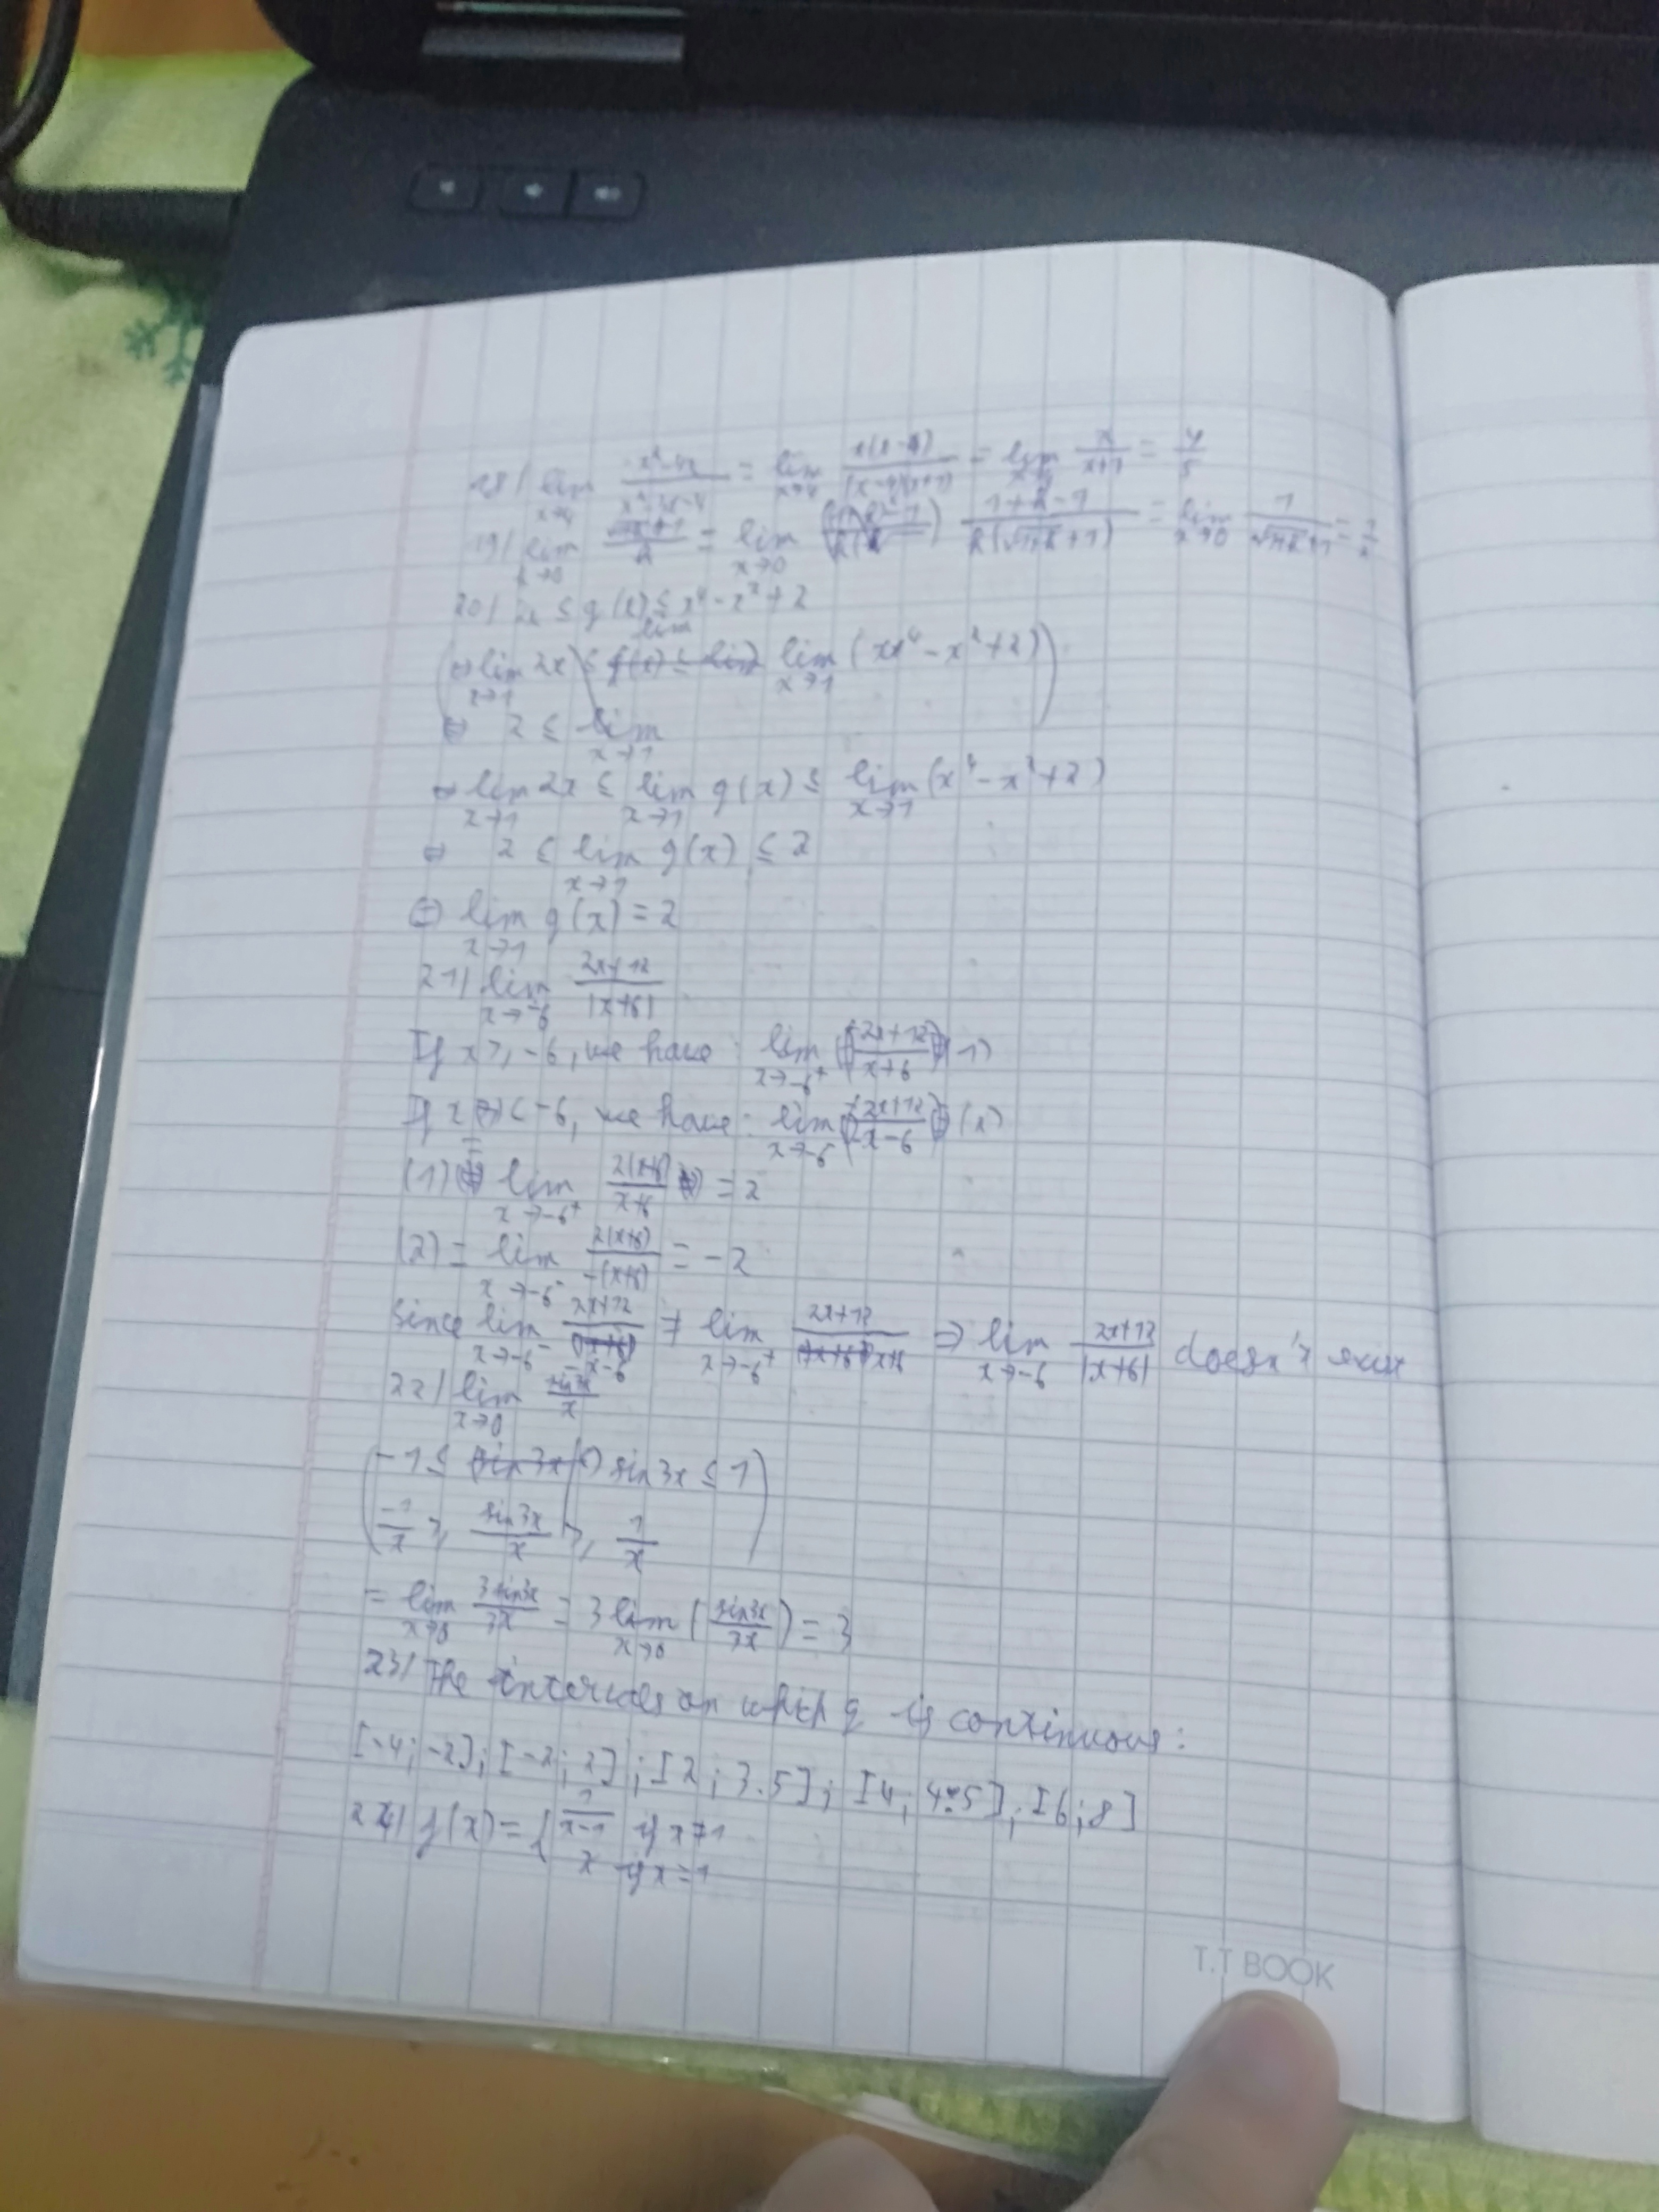 18/ lim x→4 (x²-4x)/(x²-3x-4) = lim x→4 x(x-4)/((x-4)(x+1)) = lim x→4 x/(x+1) = 4/5
19/ lim h→0 = lim x→0 (1+h-1)/(h(√(1+h)+1)) = lim x→0 1/(√(1+h)+1) = 1/2
20/ 2x ≤ g(x) ≤ x⁴-x²+2
(⇔ lim x→1 2x ≤ lim g(x) ≤ lim lim x→1 (x⁴-x²+2))
⇔ 2 ≤ lim x→1
⇔ lim x→1 2x ≤ lim x→1 g(x) ≤ lim x→1 (x⁴-x²+2)
⇔ 2 ≤ lim x→1 g(x) ≤ 2
⇔ lim x→1 g(x) = 2
21/ lim x→-6 (2x+12)/|x+6|
If x ≥ -6, we have: lim x→-6⁺ ((2x+12)/(x+6)) (1)
If x < -6, we have: lim x→-6⁻ ((2x+12)/(-x-6)) (2)
(1) = lim x→-6⁺ 2(x+6)/(x+6) = 2
(2) = lim x→-6⁻ 2(x+6)/(-(x+6)) = -2
Since lim x→-6⁻ (2x+12)/(-x-6) ≠ lim x→-6⁺ (2x+12)/(x+6) ⇒ lim x→-6 (2x+12)/|x+6| doesn't exist
22/ lim x→0 sin3x/x
(-1 ≤ sin3x ≤ 1)
(-1/x ≥ sin3x/x ≥ 1/x)
= lim x→0 3sin3x/3x = 3 lim x→0 (sin3x/3x) = 3
23/ The intervals on which g is continuous:
[-4; -2]; [-2; 2]; [2; 3.5]; [4; 4.5]; [6; 8]
24/ f(x) = { 1/(x-1) if x≠1
2 if x=1
T.T BOOK